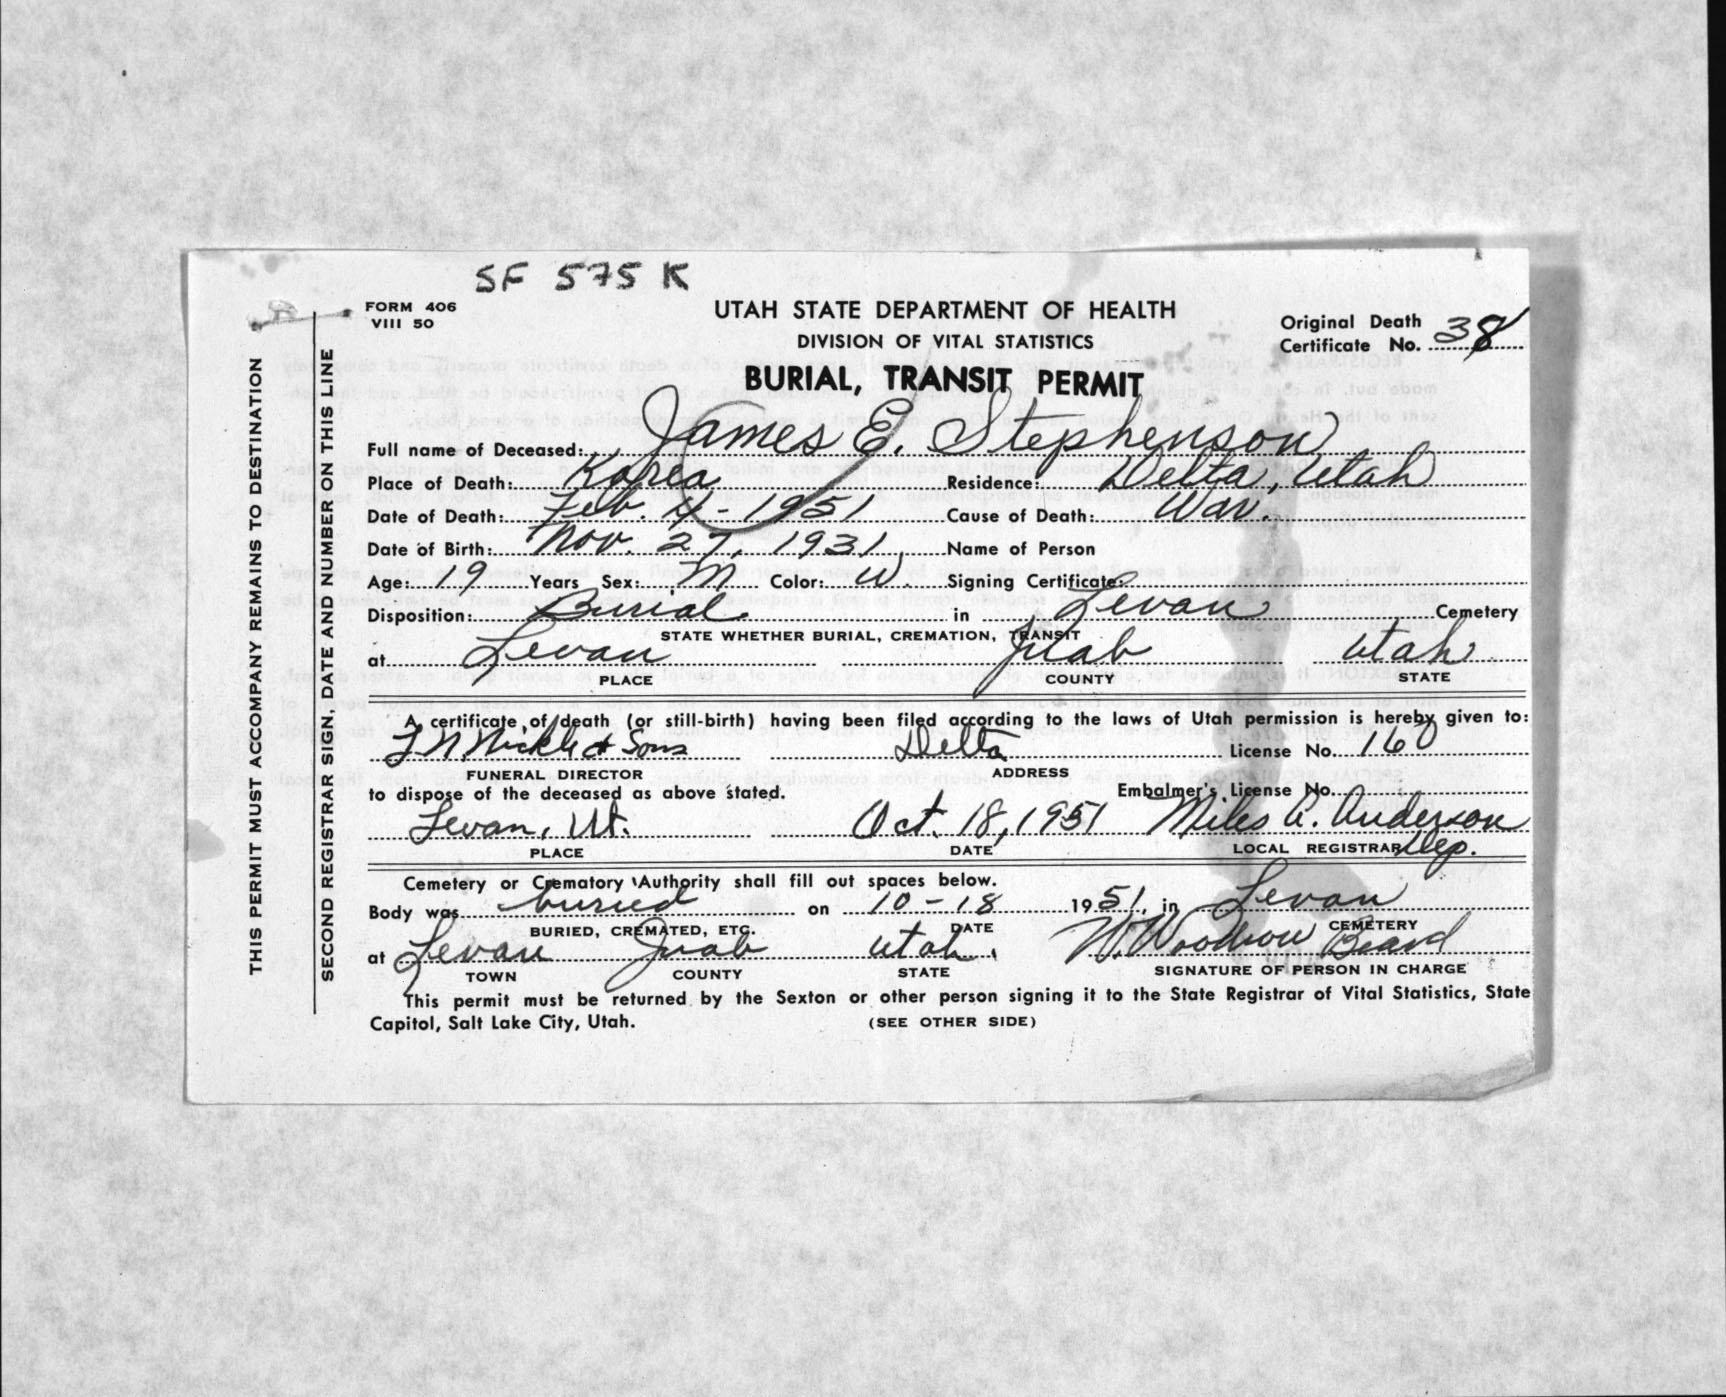 SF 575 K
FORM 406
VIII 50
UTAH STATE DEPARTMENT OF HEALTH
DIVISION OF VITAL STATISTICS
BURIAL, TRANSIT PERMIT
Original Death
Certificate No. 38
Full name of Deceased: James E. Stephenson
Place of Death: Korea Residence: Delta, Utah
Date of Death: Feb. 4 - 1951 Cause of Death: War.
Date of Birth: Nov. 27, 1931 Name of Person
Age: 19 Years Sex: M Color: W. Signing Certificate:
Disposition: Burial in Levan Cemetery
STATE WHETHER BURIAL, CREMATION, TRANSIT
at Levan Juab Utah
PLACE COUNTY STATE
A certificate of death (or still-birth) having been filed according to the laws of Utah permission is hereby given to:
& Sons Delta License No. 160
FUNERAL DIRECTOR ADDRESS
to dispose of the deceased as above stated. Embalmer's License No.
Levan, Ut. Oct. 18, 1951 Miles A. Anderson
PLACE DATE LOCAL REGISTRAR Dep.
Cemetery or Crematory Authority shall fill out spaces below.
Body was buried on 10-18 1951, in Levan
BURIED, CREMATED, ETC. DATE CEMETERY
at Levan Juab Utah. W. Woodrow Beard
TOWN COUNTY STATE SIGNATURE OF PERSON IN CHARGE
This permit must be returned by the Sexton or other person signing it to the State Registrar of Vital Statistics, State
Capitol, Salt Lake City, Utah. (SEE OTHER SIDE)
THIS PERMIT MUST ACCOMPANY REMAINS TO DESTINATION
SECOND REGISTRAR SIGN, DATE AND NUMBER ON THIS LINE